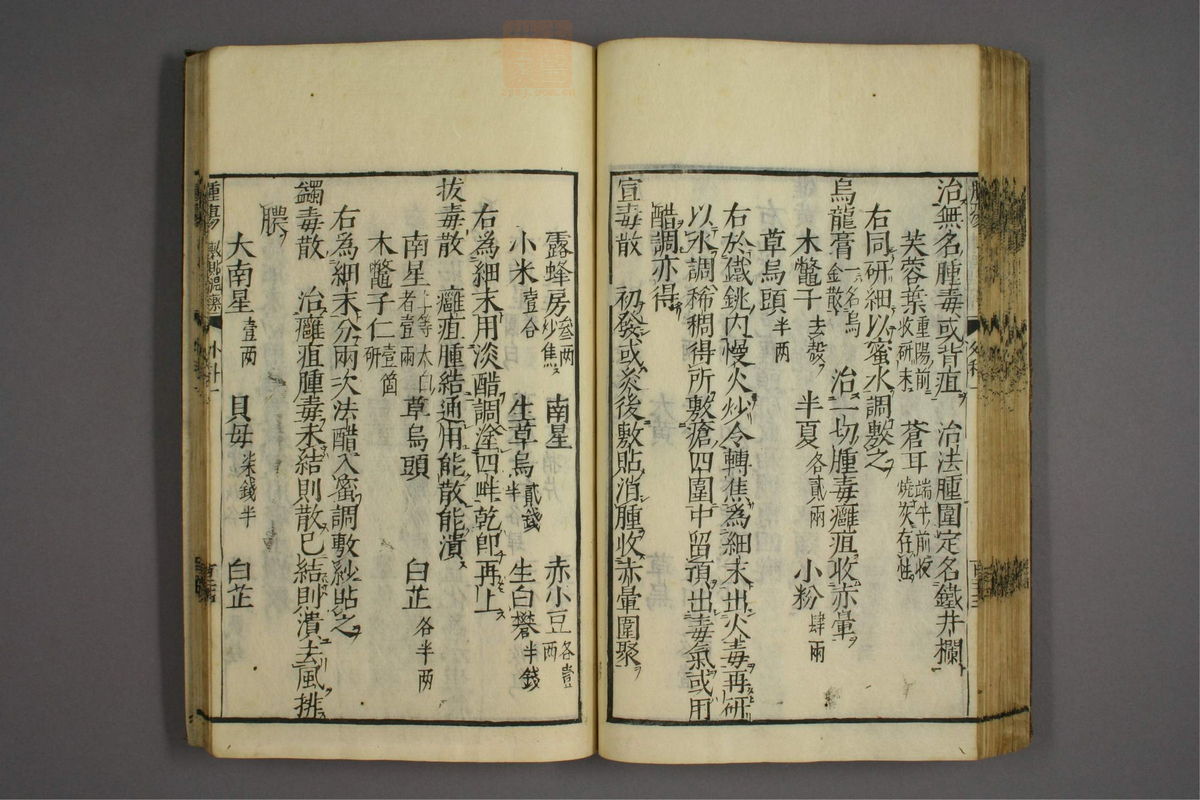 治無名腫毒或背疽 治法腫圍定名鐵井欄
芙蓉葉重陽前收研末 蒼耳端午前收燒灰存性
右同研細以蜜水調敷之
烏龍膏一名烏金散 治一切腫毒癰疽收赤暈
木鼈子去殼 半夏各貳兩 小粉肆兩
草烏頭半兩
右於鐵銚內慢火炒令轉焦為細末出火毒再研
以水調稀稠得所敷瘡四圍中留頂出毒氣或用
醋調亦得
宣毒散 初發或灸後敷貼消腫收赤暈圍聚
露蜂房炒焦叁兩 南星 赤小豆各壹兩
小米壹合 生草烏貳錢半 生白礬半錢
右為細末用淡醋調塗四畔乾即再上
拔毒散 癰疽腫結通用能散能潰
南星上等大白者壹兩 草烏頭 白芷各半兩
木鼈子仁壹箇研
右為細末分兩次法醋入蜜調敷紗貼之
蠲毒散 治癰疽腫毒未結則散已結則潰去風排
膿
大南星壹兩 貝母柒錢半 白芷
腫瘍 外科一